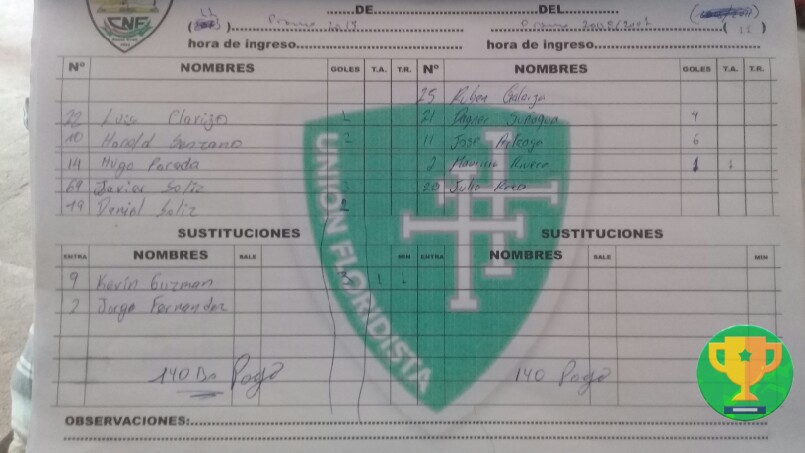 CNF
DE DEL
( 11 ) Promo ( 11 )
hora de ingreso hora de ingreso
Nº NOMBRES GOLES T.A. T.R. Nº NOMBRES GOLES T.A. T.R.
25 Ruben
22 Luis Clavijo 1 21 4
10 Harold 2 11 Jose 6
14 Hugo Parada 2 Mauricio Rivero 1 1
69 Javier Soliz 3 20 Julio Roca
19 Daniel Soliz 2
UNION FLORIDISTA
SUSTITUCIONES SUSTITUCIONES
ENTRA NOMBRES SALE MIN ENTRA NOMBRES SALE MIN
9 Kevin Guzman 3 1
2 Jorge Fernandez
140 Bs Pagó 140 Pagó
OBSERVACIONES: